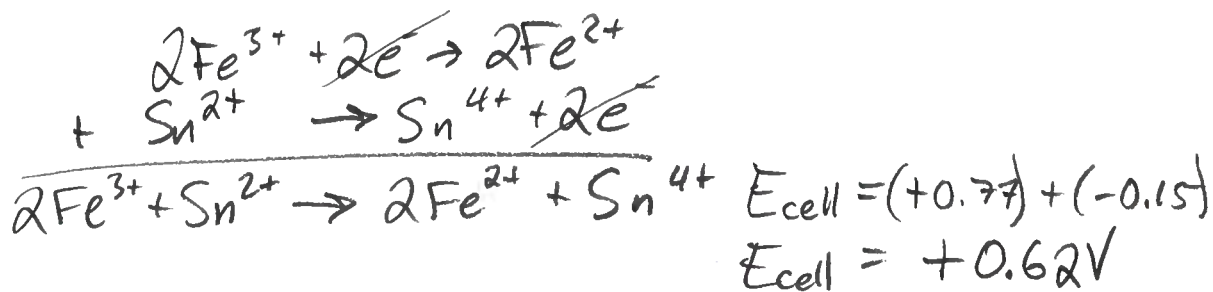 2Fe³⁺ + 2e⁻ → 2Fe²⁺
+ Sn²⁺ → Sn⁴⁺ + 2e⁻
2Fe³⁺ + Sn²⁺ → 2Fe²⁺ + Sn⁴⁺ Ecell = (+0.77) + (-0.15)
Ecell = +0.62V